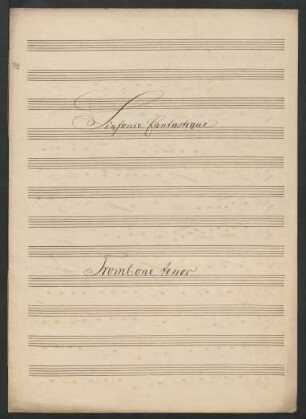 Sinfonie fantastique
Trombone tenor